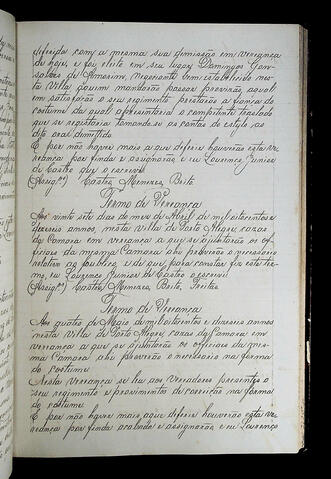 deferido com a mesma sua demissão em vereança
de hoje, e foi eleito em seu lugar Domingos Gon-
salves de Amorim, negociante bem estabelecido nes-
ta Villa aquem mandarão passar provizão, aqual
em satisfação o seu regimento prestarão a fiança do
costume da qual aprezentaria o competente treslado
que se registaria tomando-se as contas do estylo ao
dito oral demittido
E por não haver mais a que deferir houverão esta ve-
reança por finda e assignarão, e eu Lourenço Junior
de Castro que o escrevi
(Assig.os) Castro, Menezes, Brito.
Termo de Vereança
Aos vinte sete dias do mez de Abril de mil oitocentos e
dezeseis annos, nesta Villa de Porto Alegre, cazas
da Camara em vereança a que se ajuntarão os of-
ficiaes da mesma Camara ahi proverão o necessario
relativo ao publico, e de que, para constar fiz este ter-
mo, eu Lourenço Junior de Castro o escrevi
(Assig.os) Castro, Menezes, Brito, Freitas
Termo de Vereança
Aos quatro de Maio de mil oitocentos e dezeseis annos
nesta Villa de Porto Alegre, cazas da Camara em
vereança a que se ajuntarão os officiaes da mes-
ma Camara ahi proverão o necessario na forma
do costume
Nesta Vereança se leu aos Vereadores prezentes o
seu regimento e provimentos de correição na forma
do costume
E por não haver mais aque deferir houverão esta ve-
reança por finda acabada e assignarão, e eu Lourenço